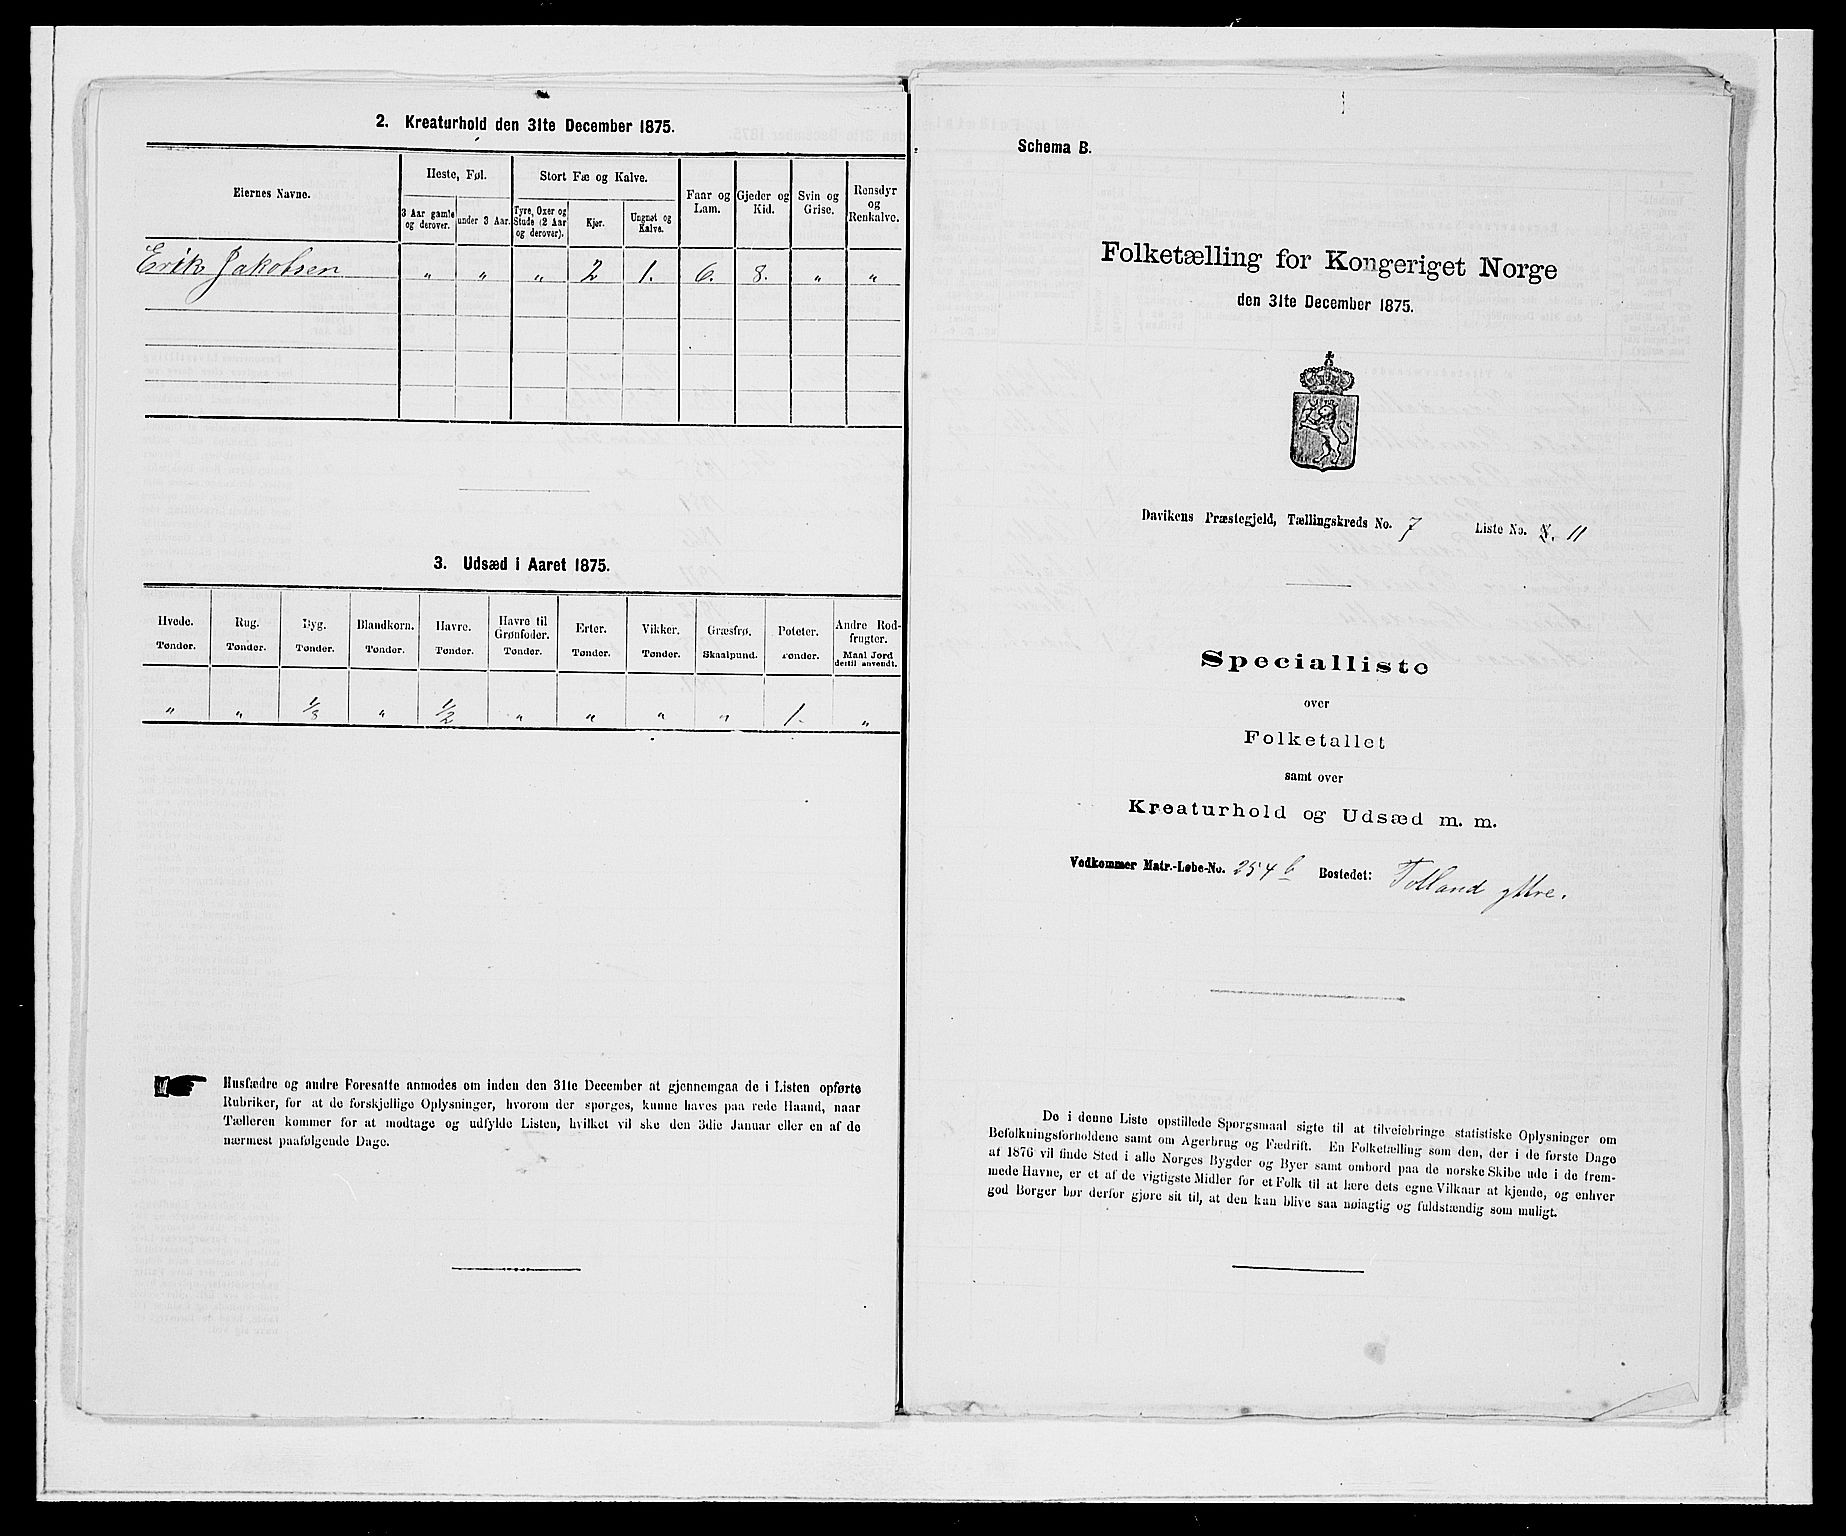 2. Kreaturhold den 31te December 1875.
Eiernes Navne.
Heste, Føl.
Stort Fæ og Kalve.
Faar og Lam.
Gjeder og Kid.
Svin og Grise.
Rensdyr og Renkalve.
3 Aar gamle og derover.
under 3 Aar.
Tyre, Oxer og Stude (2 Aar og derover).
Kjør.
Ungnøt og Kalve.
Erik Jakobsen " " " 2 1. 6. 8. " "
3. Udsæd i Aaret 1875.
Hvede. Rug. Byg. Blandkorn. Havre. Havre til Grønfoder. Erter. Vikker. Græsfrø. Poteter. Andre Rodfrugter.
Tønder. Tønder. Tønder. Tønder. Tønder. Tønder. Tønder. Tønder. Skaalpund. Tønder. Maal Jord dertil anvendt.
" " 1/3 " 1/2 " " " " 1. "
Husfædre og andre Foresatte anmodes om inden den 31te December at gjennemgaa de i Listen opførte
Rubriker, for at de forskjellige Oplysninger, hvorom der spørges, kunne haves paa rede Haand, naar
Tælleren kommer for at modtage og udfylde Listen, hvilket vil ske den 3die Januar eller en af de
nærmest paafølgende Dage.
Schema B.
Folketælling for Kongeriget Norge
den 31te December 1875.
Davikens Præstegjeld, Tællingskreds No. 7 Liste No. 11
Specialliste
over
Folketallet
samt over
Kreaturhold og Udsæd m. m.
Vedkommer Matr.-Løbe-No. 254 b Bostedet: Totland yttre.
De i denne Liste opstillede Spørgsmaal sigte til at tilveiebringe statistiske Oplysninger om
Befolkningsforholdene samt om Agerbrug og Fædrift. En Folketælling som den, der i de første Dage
af 1876 vil finde Sted i alle Norges Bygder og Byer samt ombord paa de norske Skibe ude i de frem-
mede Havne, er et af de vigtigste Midler for et Folk til at lære dets egne Vilkaar at kjende, og enhver
god Borger bør derfor gjøre sit til, at den kan blive saa nøiagtig og fuldstændig som muligt.